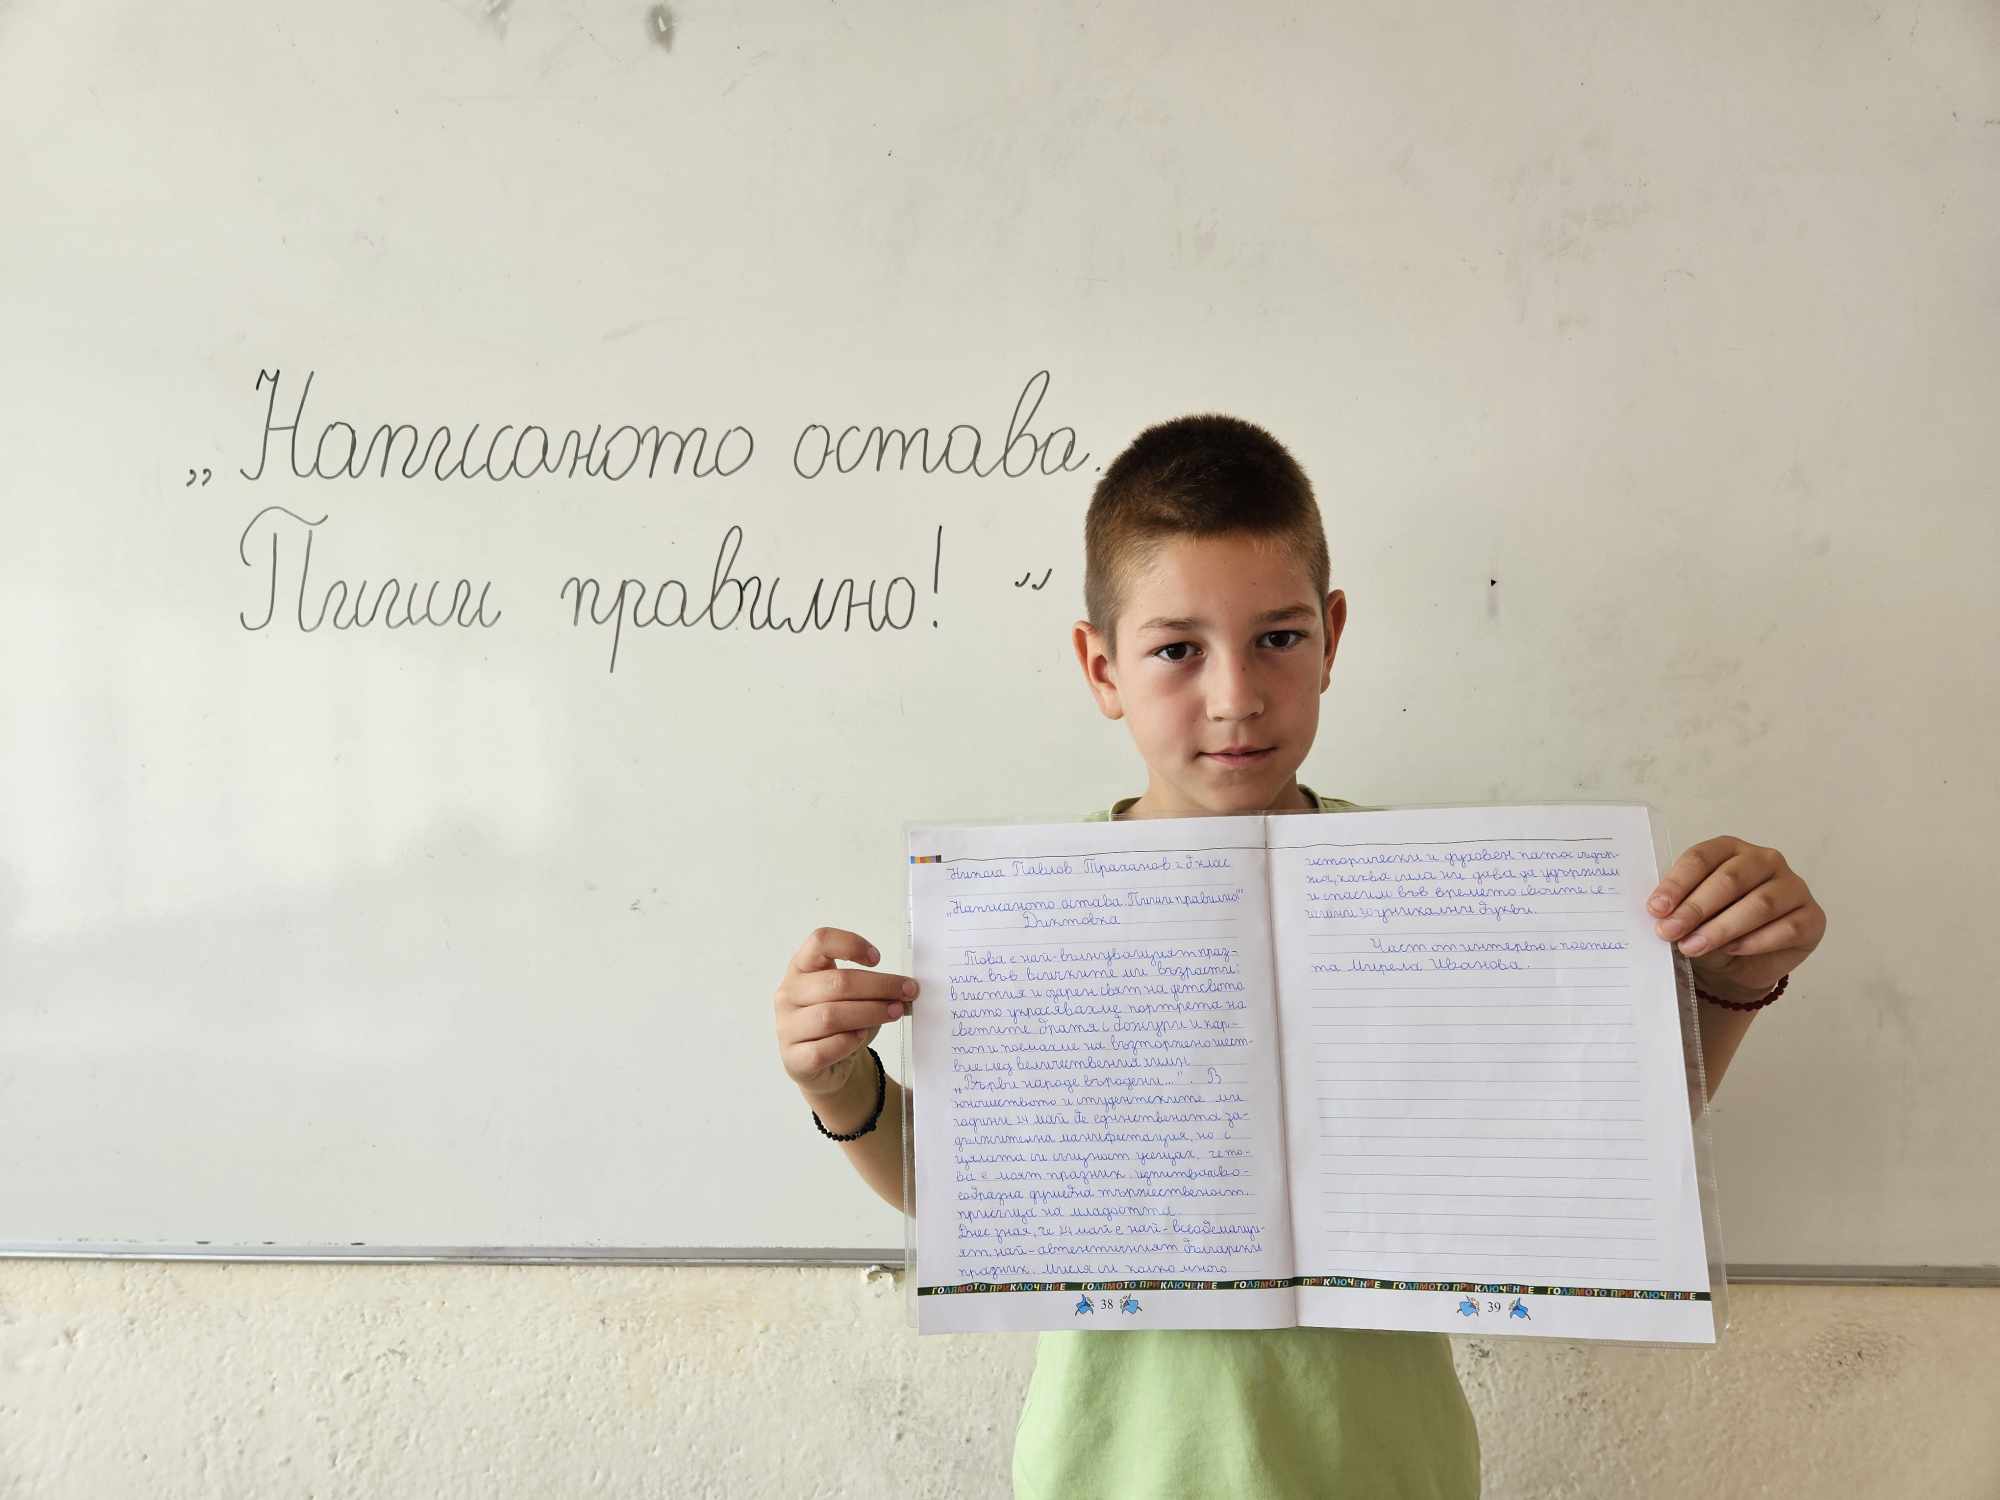 „Написаното остава.
Пиши правилно!“
Никола Павлов Траханов 2 б клас
„Написаното остава. Пиши правилно!“
Диктовка
Това е най-вълнуващият праз-
ник във всичките ми възрасти:
в чистия и озарен свят на детството
когато украсявахме портрета на
светите братя с божури и кар-
тон и поемахме на възторжено шест-
вие след величествения химн
„Върви народе възродени...“. В
юношеството и студентските ми
години 24 май бе единствената за-
дължителна манифестация, но с
цялата си същност усещах, че то-
ва е моят празник, изпитвах
душевна тържественост,
присъща на младостта.
Днес зная, че 24 май е най-всеобемащи-
ят, най-автентичният български
празник. Мисля си колко много
исторически и духовен патос съдър-
жа, каква сила ни дава да удържим
и спасим във времето своите се-
уникални букви.
Част от интервю с поетеса-
та Мирела Иванова.
ГОЛЯМОТО ПРИКЛЮЧЕНИЕ ГОЛЯМОТО ПРИКЛЮЧЕНИЕ ГОЛЯМОТО ПРИКЛЮЧЕНИЕ ГОЛЯМОТО ПРИКЛЮЧЕНИЕ ГОЛЯМОТО ПРИКЛЮЧЕНИЕ
38
39